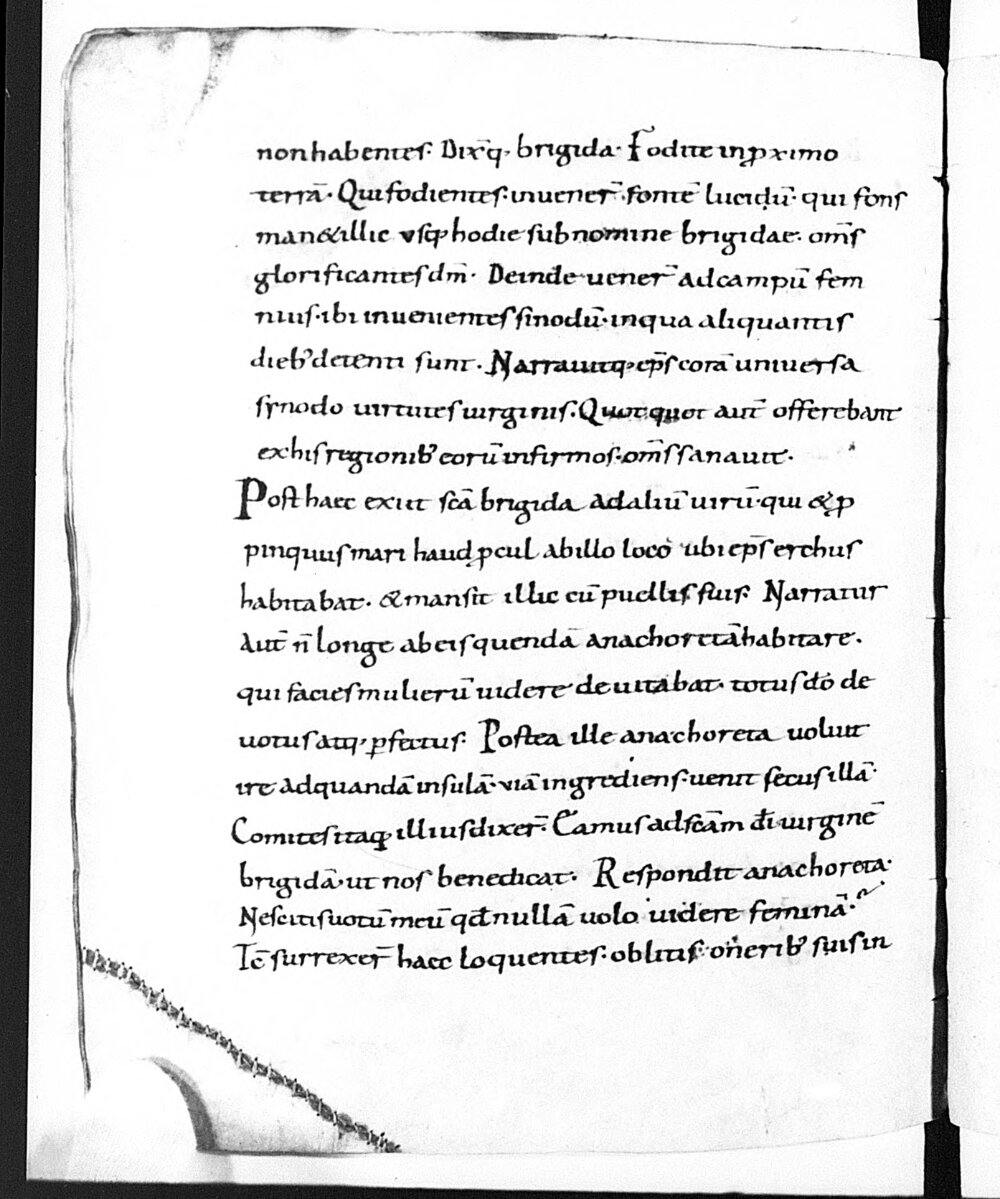 nonhabentes. Dix̄q; brigida. Fodite inꝓximo
terrā. Quifodientes. inuener̄. fontē lucidū. qui fons
man&illic vsq; hodie subnomine brigidae. om̄s
glorificantes dm̄. Deinde uener̄ adcampū fem
nius. ibi inuenientes sinodū. inqua aliquantis
dieb; detenti sunt. Narrauitq; ep̄s corā uniuersa
synodo uirtutes uirginis. Quotquot aut̄ offerebant
exhis regionib; eorū infirmos. om̄s sanauit.
Post haec exiit sc̄a brigida adaliū uirū. qui & ꝓ
pinquus mari haud ꝓcul abillo loco ubi ep̄s erchus
habitabat. & mansit illic cū puellis suis. Narratur
Aut̄ n̄ longe abeis quendā anachoretā habitare.
qui facies mulierū uidere deuitabat. totus dō de
uotus atq; ꝑfectus. Postea ille anachoreta uoluit
ire adquandā insulā. viā ingrediens. uenit secus illā.
Comites itaq; illius dixer̄. Eamus adsc̄am dī uirginē
brigidā. ut nos benedicat. Respondit anachoreta.
Nescitis uotū meū qđ nullā uolo uidere feminā.
Tc̄ surrexer̄ haec loquentes. oblitis. onerib; suis in